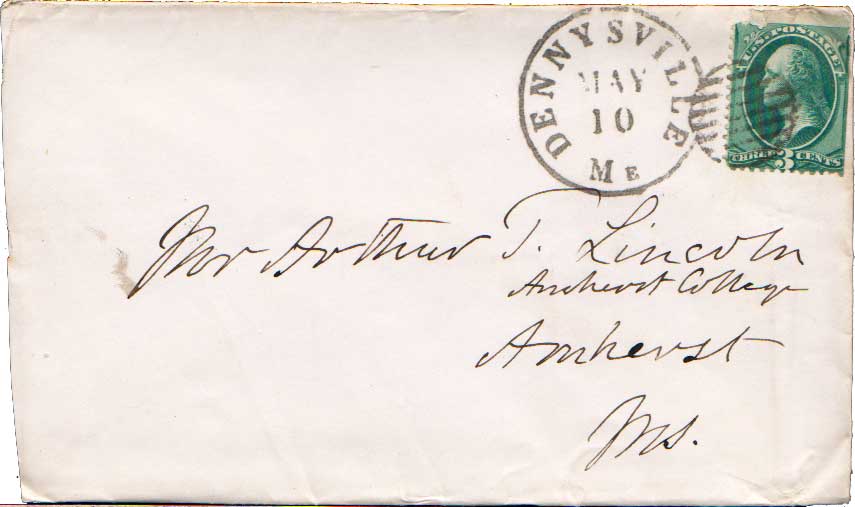 DENNYSVILLE
MAY
10
ME
U.S. POSTAGE
THREE 3 CENTS
Mr Arthur T. Lincoln
Amherst College
Amherst
Ms.